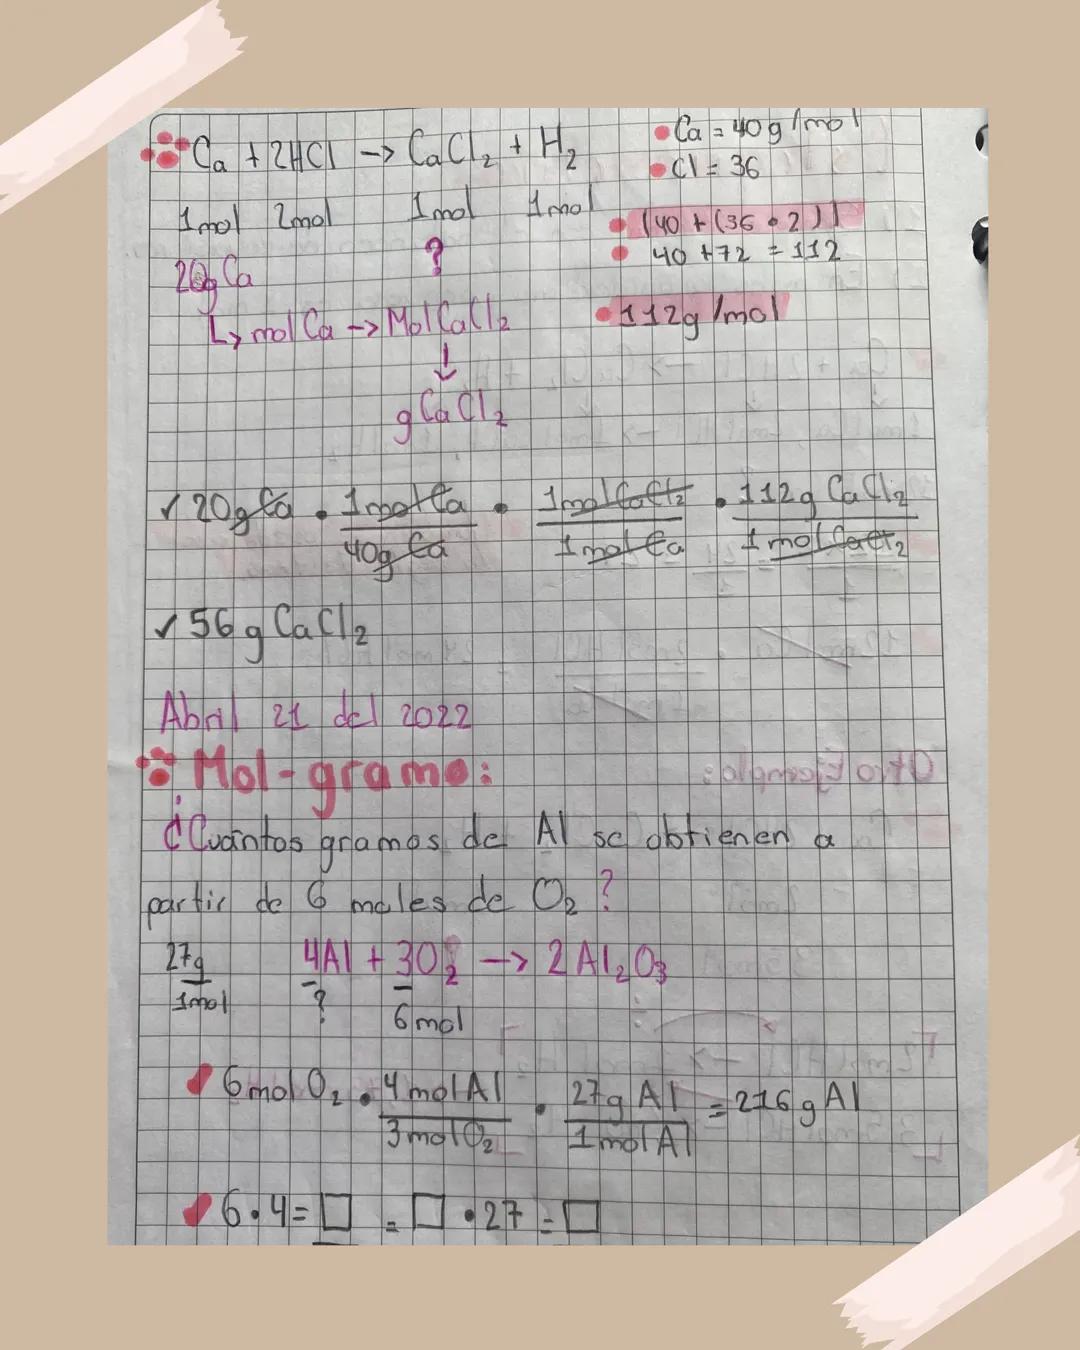 Ca + 2HCl -> CaCl₂ + H₂
1mol 2mol 1mol 1mol
20g Ca ?
↳ mol Ca -> Mol CaCl₂
↓
g CaCl₂
• Ca = 40g/mol
• Cl = 36
• (40 + (36 • 2))
• 40 + 72 = 112
• 112g/mol
✓ 20g Ca • 1mol Ca / 40g Ca • 1mol CaCl₂ / 1mol Ca • 112g CaCl₂ / 1mol CaCl₂
✓ 56 g CaCl₂
Abril 21 del 2022
Mol-gramo:
¿Cuántos gramos de Al se obtienen a
partir de 6 moles de O₂?
27g / 1mol 4Al + 3O₂ -> 2Al₂O₃
? 6mol
✓ 6mol O₂ • 4mol Al / 3mol O₂ • 27g Al / 1mol Al = 216g Al
✓ 6•4 = □ = □ • 27 = □